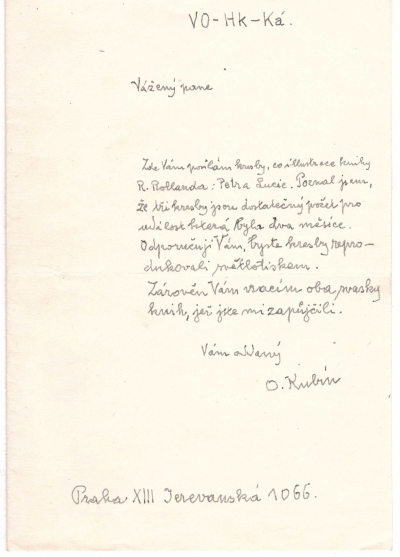 VO-Hk-Ká.
Vážený pane
Zde Vám posílám kresby, co illustrace knihy
R. Rollanda: Petr a Lucie. Poznal jsem,
že tři kresby jsou dostatečný počet pro
událost která byla dva měsíce.
Odporučuji Vám, byste kresby repro-
dukovali světlotiskem.
Zároveň Vám vracím oba svazky
knih, jež jste mi zapůjčili.
Vám oddaný
O. Kubín
Praha XIII Jerevanská 1066.